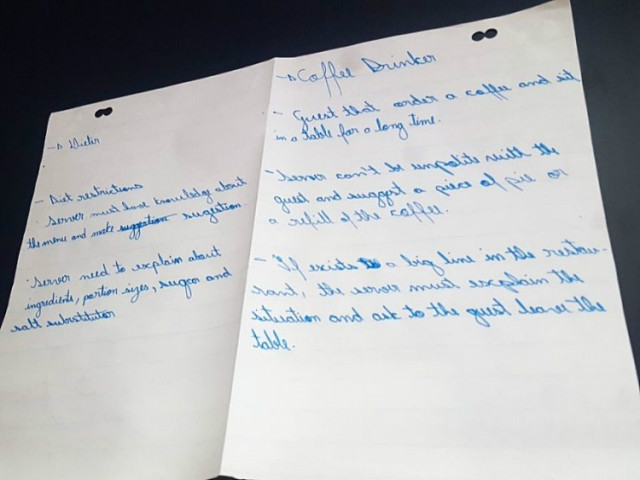 → Dieter
- Diet restrictions
· Server must have knowledge about
the menu and make suggestion sugestion.
· Server need to explain about
ingredients, portion sizes, sugar and
salt substitutor
→ Coffee Drinker
- Guest that order a coffee and sit
in a table for a long time.
- Server can't be unpolite with the
guest and suggest a piece of pie or
a refill of the coffee.
- If exists a big line in the restau-
rant, the server must explain the
situation and ask to the guest leave the
table.